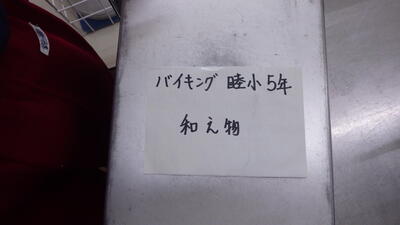 バイキング 睦小5年
和え物